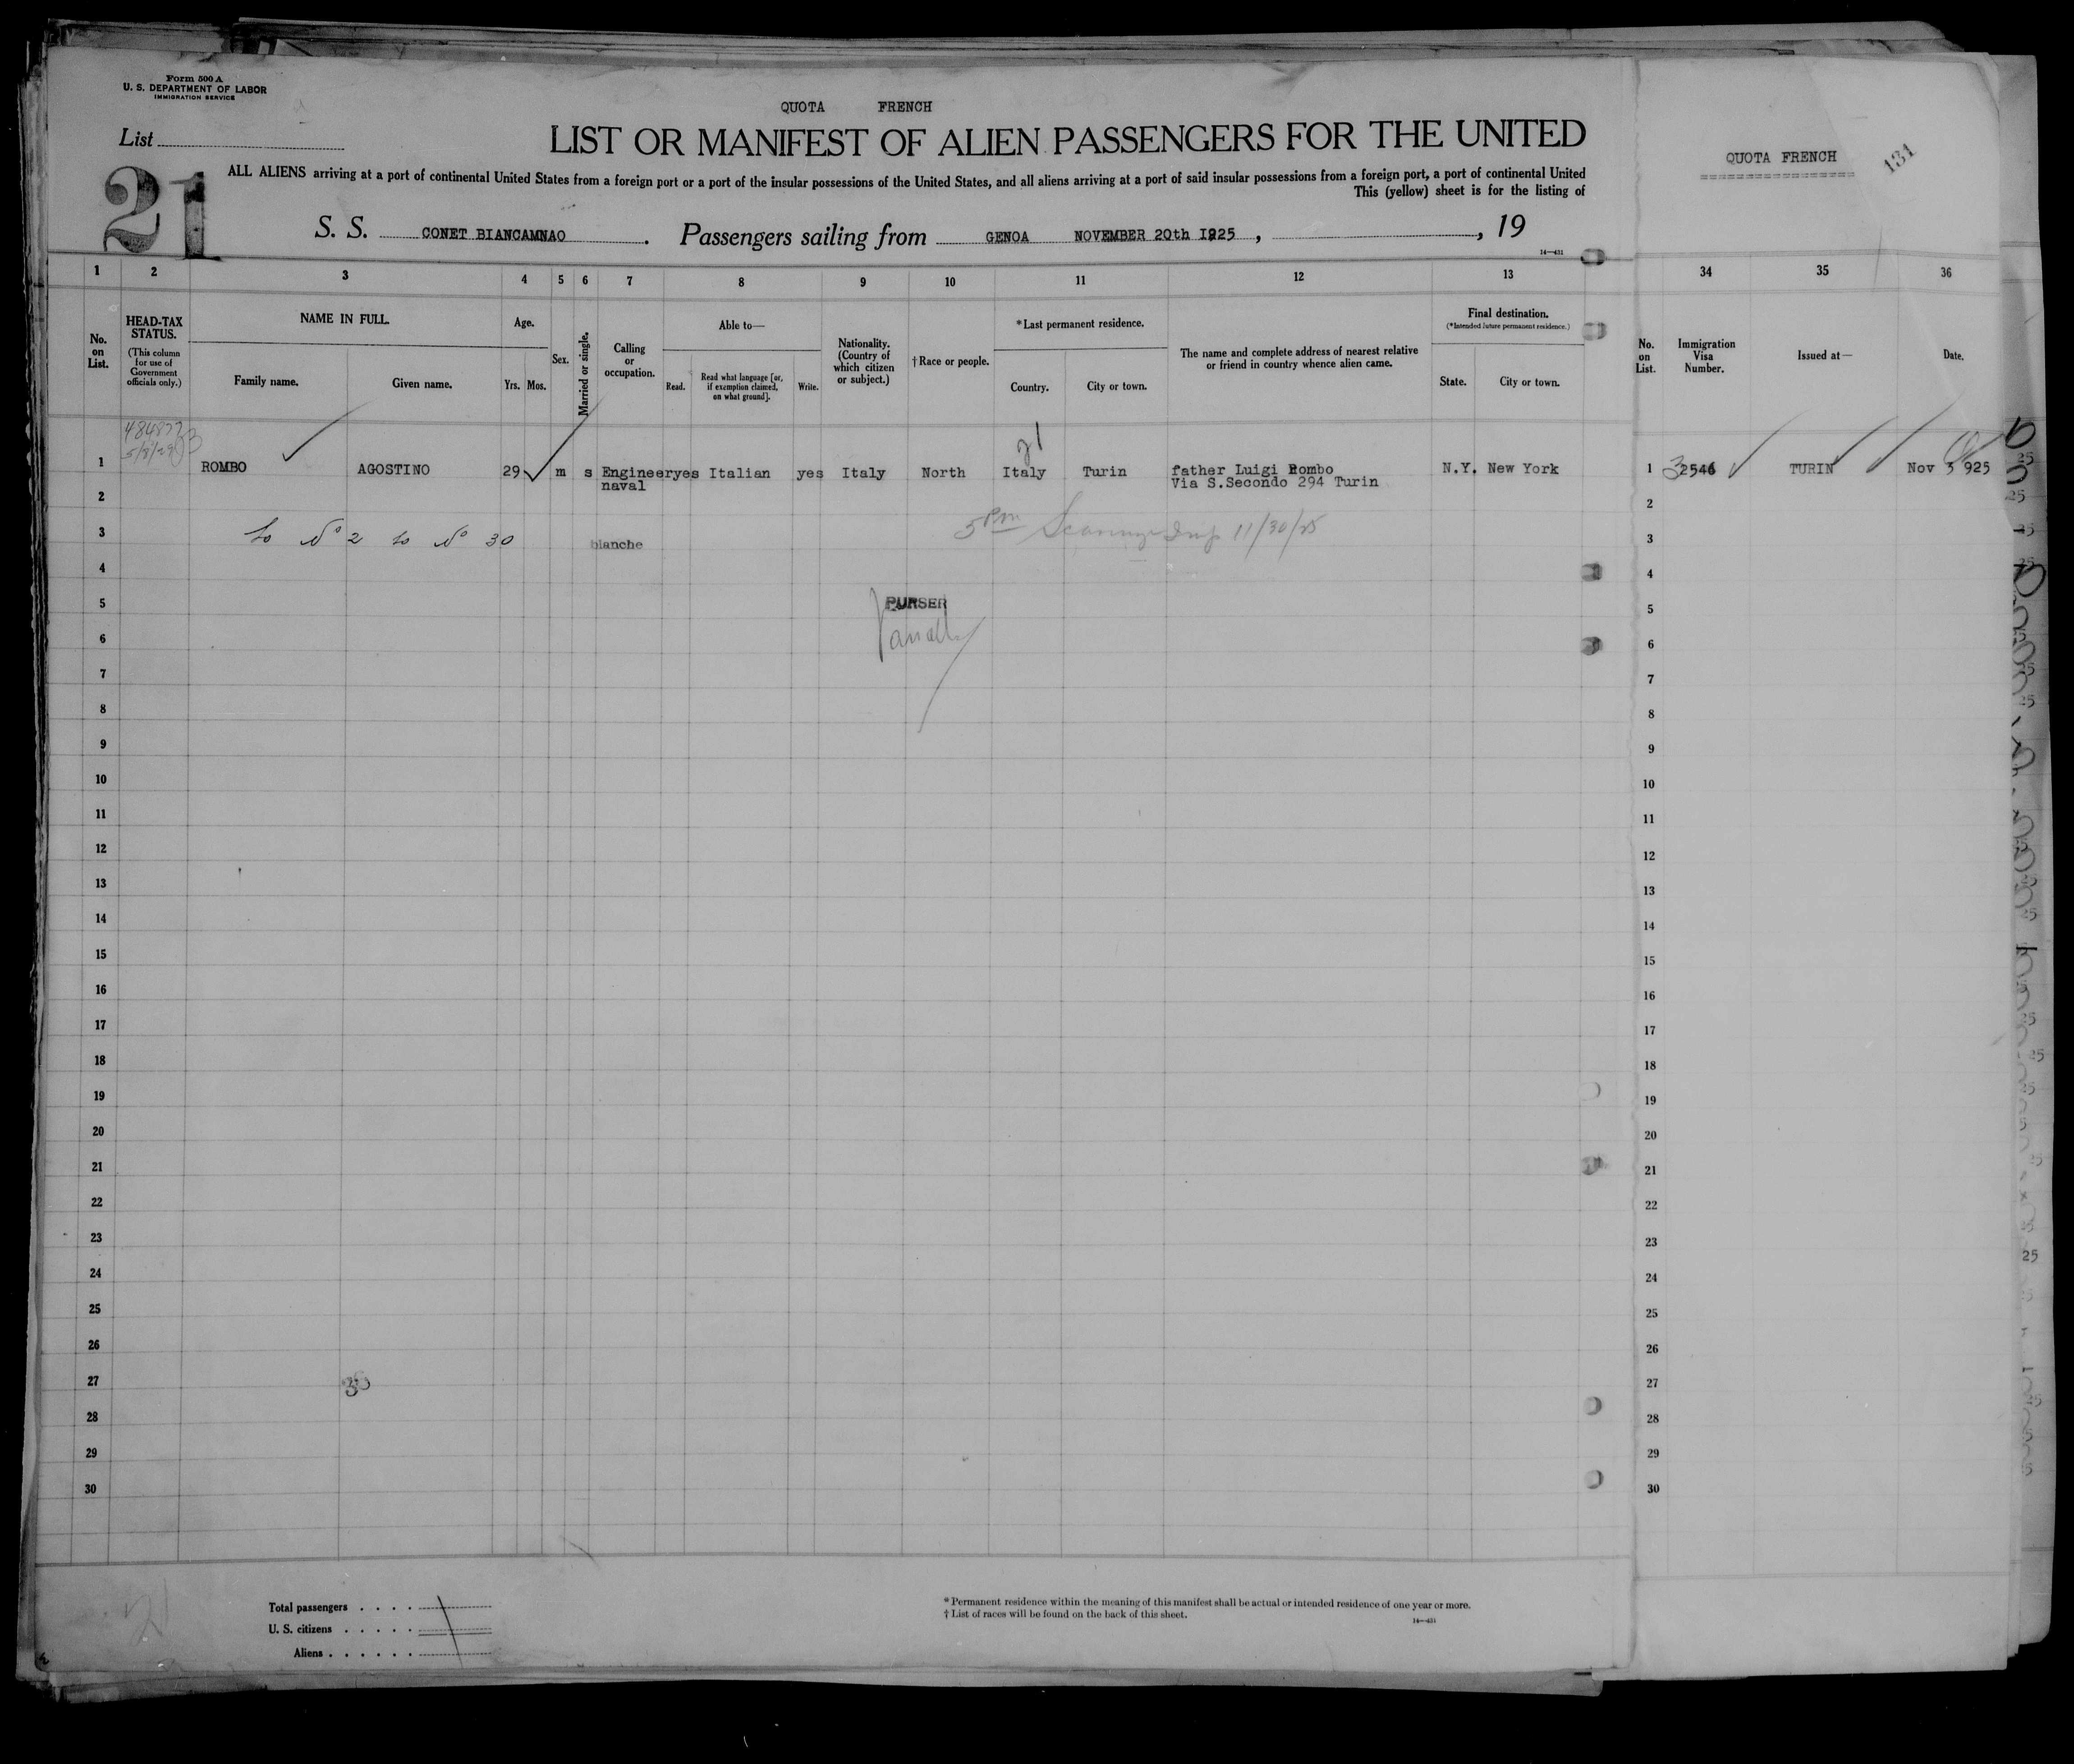 Form 500 A
U. S. DEPARTMENT OF LABOR
IMMIGRATION SERVICE
List
21
QUOTA FRENCH
LIST OR MANIFEST OF ALIEN PASSENGERS FOR THE UNITED
ALL ALIENS arriving at a port of continental United States from a foreign port or a port of the insular possessions of the United States, and all aliens arriving at a port of said insular possessions from a foreign port, a port of continental United
This (yellow) sheet is for the listing of
S. S. CONET BIANCAMNAO. Passengers sailing from GENOA NOVEMBER 20th 1925, , 19
14—431
QUOTA FRENCH
131
1 2 3 4 5 6 7 8 9 10 11 12 13 34 35 36
No. on List.
HEAD-TAX STATUS.
(This column for use of Government officials only.)
NAME IN FULL.
Family name. Given name.
Age.
Yrs. Mos.
Sex.
Married or single.
Calling or occupation.
Able to—
Read. Read what language [or, if exemption claimed, on what ground]. Write.
Nationality. (Country of which citizen or subject.)
†Race or people.
*Last permanent residence.
Country. City or town.
The name and complete address of nearest relative or friend in country whence alien came.
Final destination.
(*Intended future permanent residence.)
State. City or town.
No. on List.
Immigration Visa Number.
Issued at—
Date.
484877
1 ROMBO AGOSTINO 29 m s Engineer yes Italian yes Italy North Italy Turin father Luigi Rombo N.Y. New York 1 32546 TURIN Nov 3 925
naval Via S.Secondo 294 Turin
2 2
3 to No 2 to No 30 blanche 5 PM 11/30/25 3
4 4
5 PURSER 5
6 6
7 7
8 8
9 9
10 10
11 11
12 12
13 13
14 14
15 15
16 16
17 17
18 18
19 19
20 20
21 21
22 22
23 23
24 24
25 25
26 26
27 27
28 28
29 29
30 30
21
Total passengers
U. S. citizens
Aliens
* Permanent residence within the meaning of this manifest shall be actual or intended residence of one year or more.
† List of races will be found on the back of this sheet.
14—431